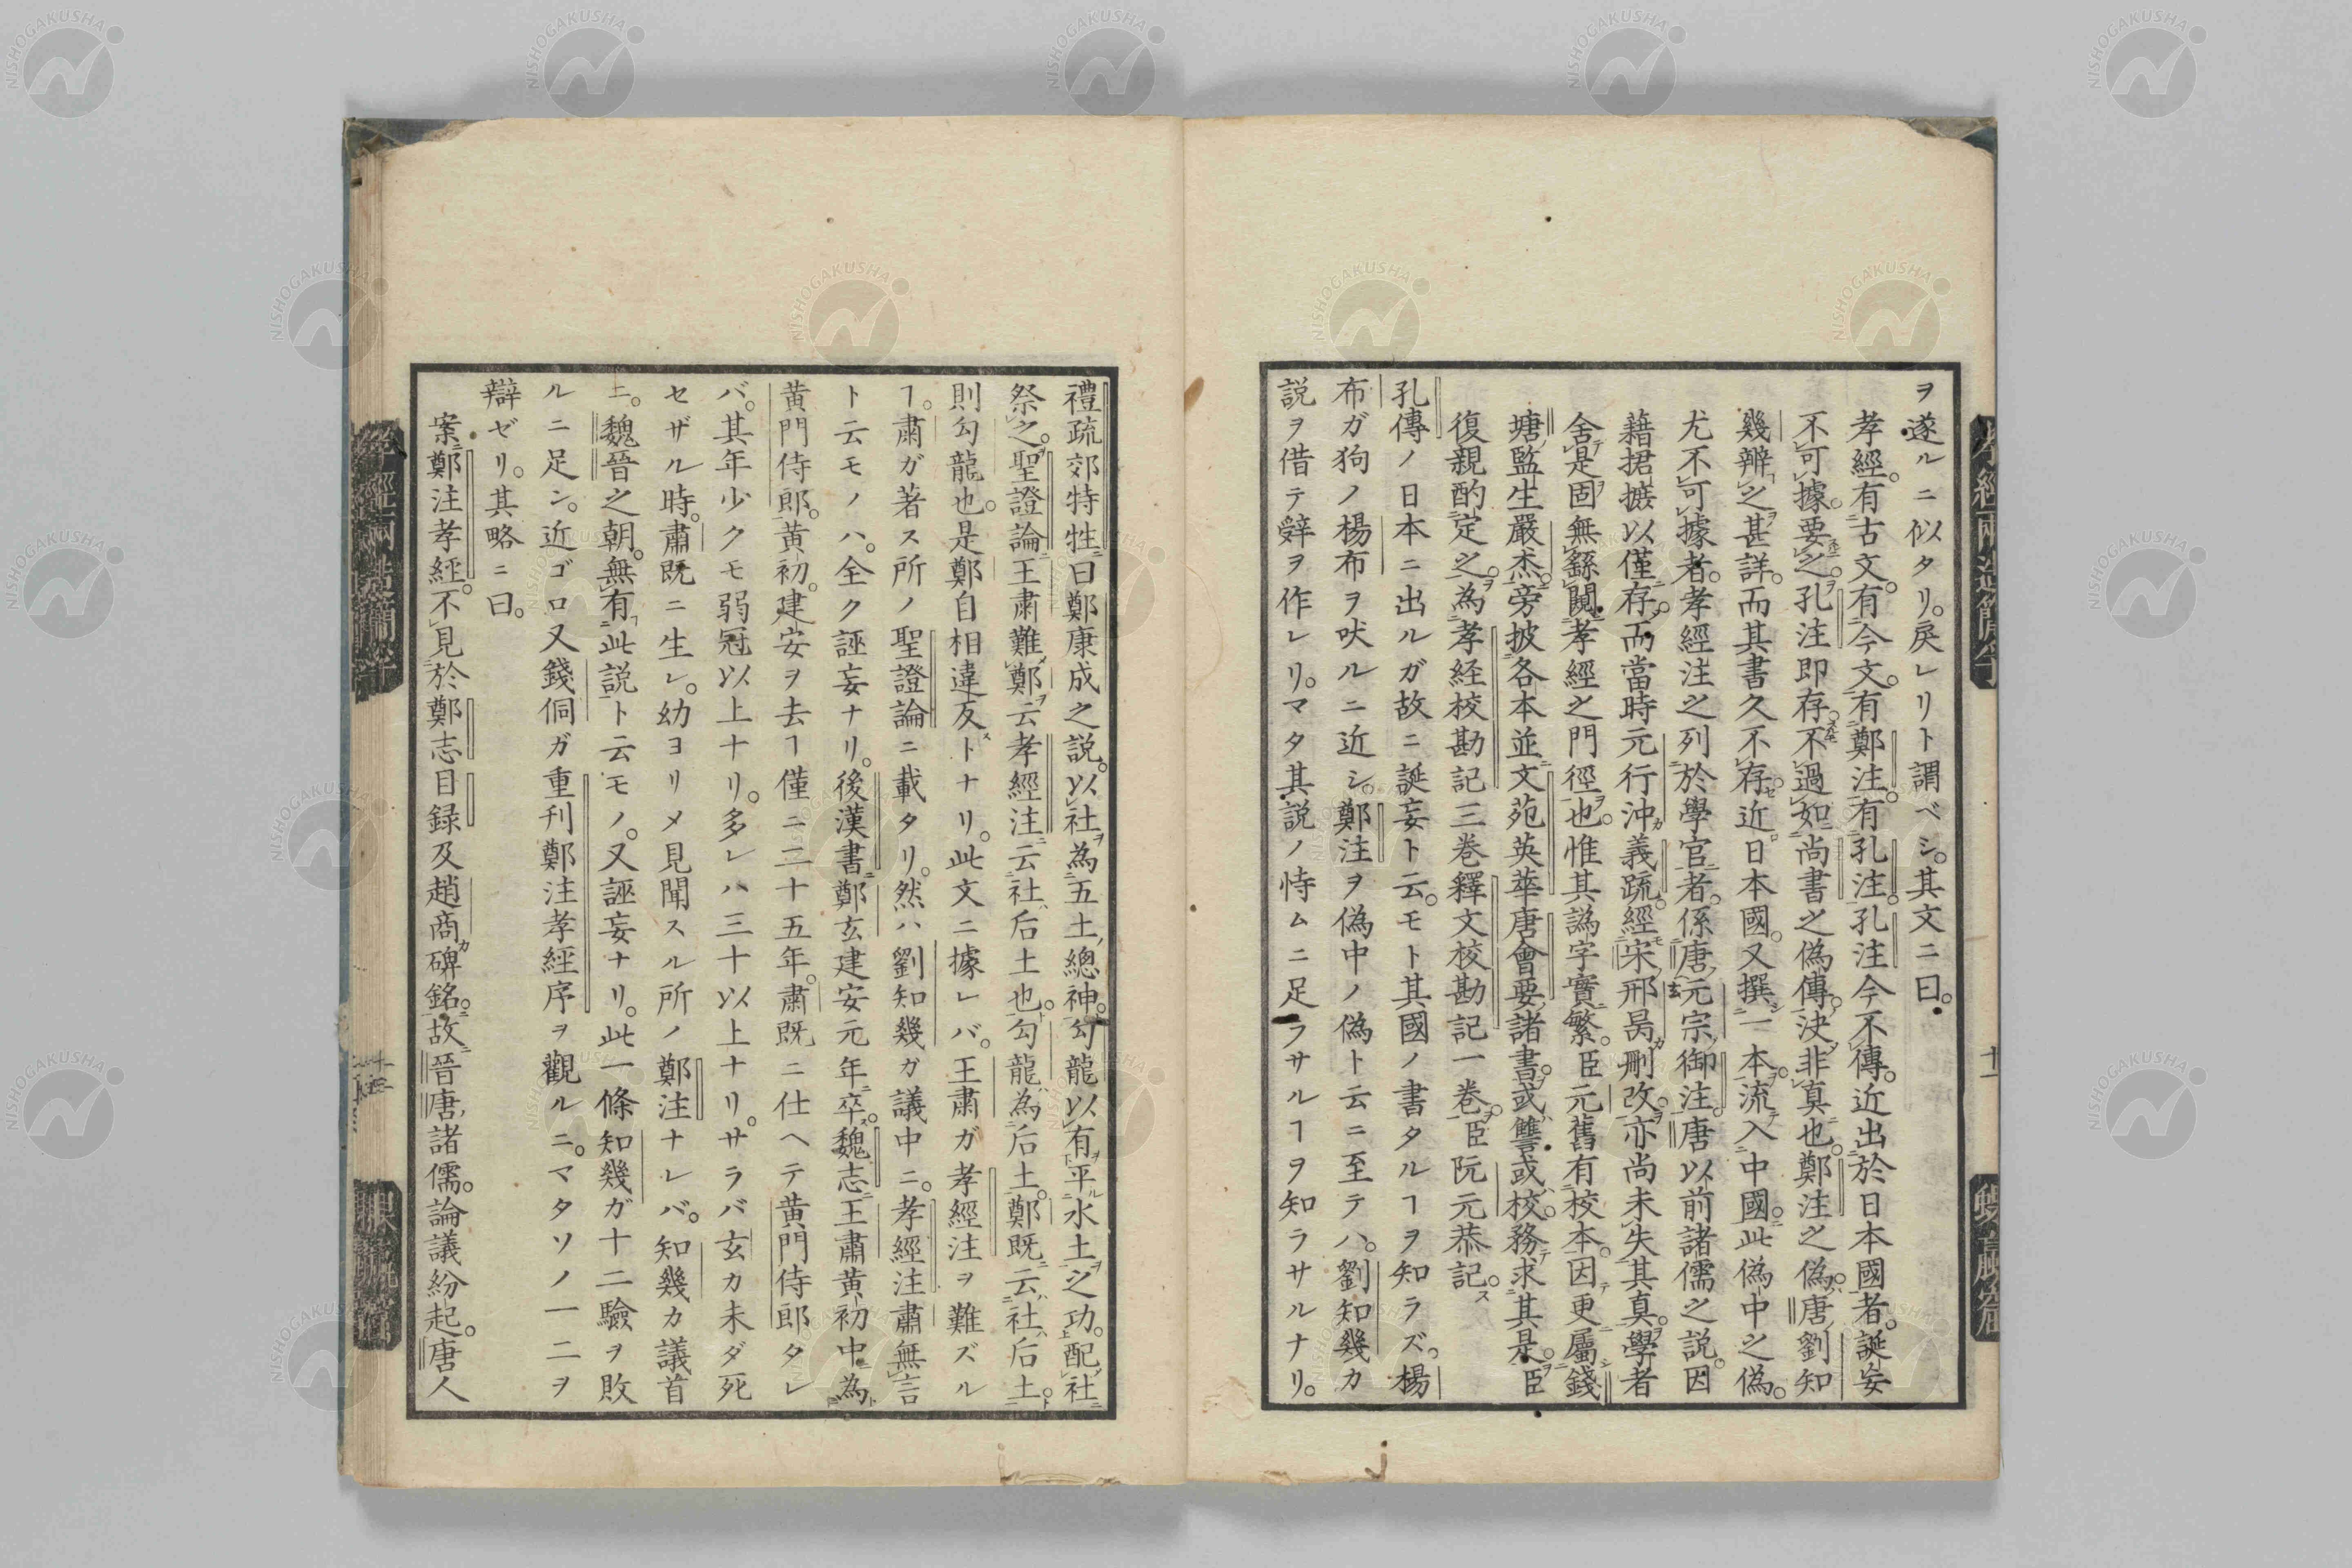 ヲ遂ルニ似タリ。戾レリト謂ベシ。其文ニ曰。
孝經。有古文。有今文。有鄭注。有孔注。孔注今不傳。近出於日本國者。誕妄
不可據。要之。孔注即存。不過如尚書之偽傳。決非真也。鄭注之偽。唐劉知
幾辨之甚詳。而其書久不存。近日本國。又撰一本。流入中國。此偽中之偽。
尤不可據者。孝經注之列於學官者。係唐元宗御注。唐以前諸儒之説。因
藉捃摭以僅存。而當時元行沖義疏。經宋邢昺刪改。亦尚未失其真。學者
舍是固無繇闚孝經之門徑也。惟其譌字實繁。臣元舊有校本。因更屬錢
塘監生嚴杰。旁披各本並文苑英華唐會要諸書。或讐或校。務求其是。臣
復親酌定之。為孝経校勘記三巻釋文校勘記一巻。臣阮元恭記。
孔傳ノ日本ニ出ルガ故ニ誕妄ト云。モト其國ノ書タルヿヲ知ラズ。楊
布ガ狗ノ楊布ヲ吠ルニ近シ。鄭注ヲ偽中ノ偽ト云ニ至テハ。劉知幾カ
説ヲ借テ辤ヲ作レリ。マタ其説ノ恃ムニ足ラサルヿヲ知ラサルナリ。
禮疏郊特牲曰鄭康成之説。以社為五土總神。勾龍以有平水土之功。配社
祭之。聖證論王肅難鄭云孝經注云社后土也。勾龍為后土。鄭既云社后土。
則勾龍也。是鄭自相違反トナリ。此文ニ據レバ。王肅ガ孝經注ヲ難ズル
ヿ。肅ガ著ス所ノ聖證論ニ載タリ。然ハ劉知幾ガ議中ニ。孝經注肅無言
ト云モノハ。全ク誣妄ナリ。後漢書鄭玄建安元年卒。魏志王肅黄初中為
黄門侍郎。黄初。建安ヲ去ヿ僅ニ二十五年。肅既ニ仕ヘテ黄門侍郎タレ
バ。其年少クモ弱冠以上ナリ。多レハ三十以上ナリ。サラバ玄カ未ダ死
セザル時。肅既ニ生レ。幼ヨリメ見聞スル所ノ鄭注ナレバ。知幾カ議首
ニ。魏晉之朝。無有此説ト云モノ。又誣妄ナリ。此一條知幾ガ十二驗ヲ敗
ルニ足ン。近ゴロ又錢侗ガ重刊鄭注孝經序ヲ觀ルニ。マタソノ一二ヲ
辯ゼリ。其略ニ曰。
案鄭注孝經。不見於鄭志目録及趙商碑銘。故晉唐諸儒。論議紛起。唐人